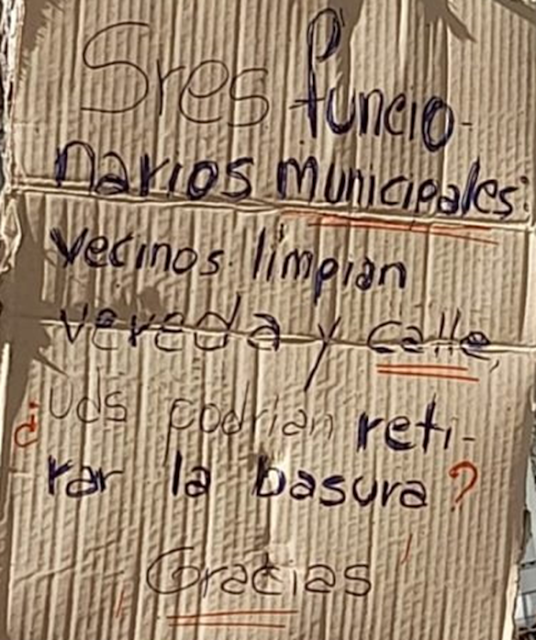 Sres funcio-
narios municipales:
vecinos limpian
vereda y calle,
¿Uds podrian reti-
rar la basura?
¡Gracias!